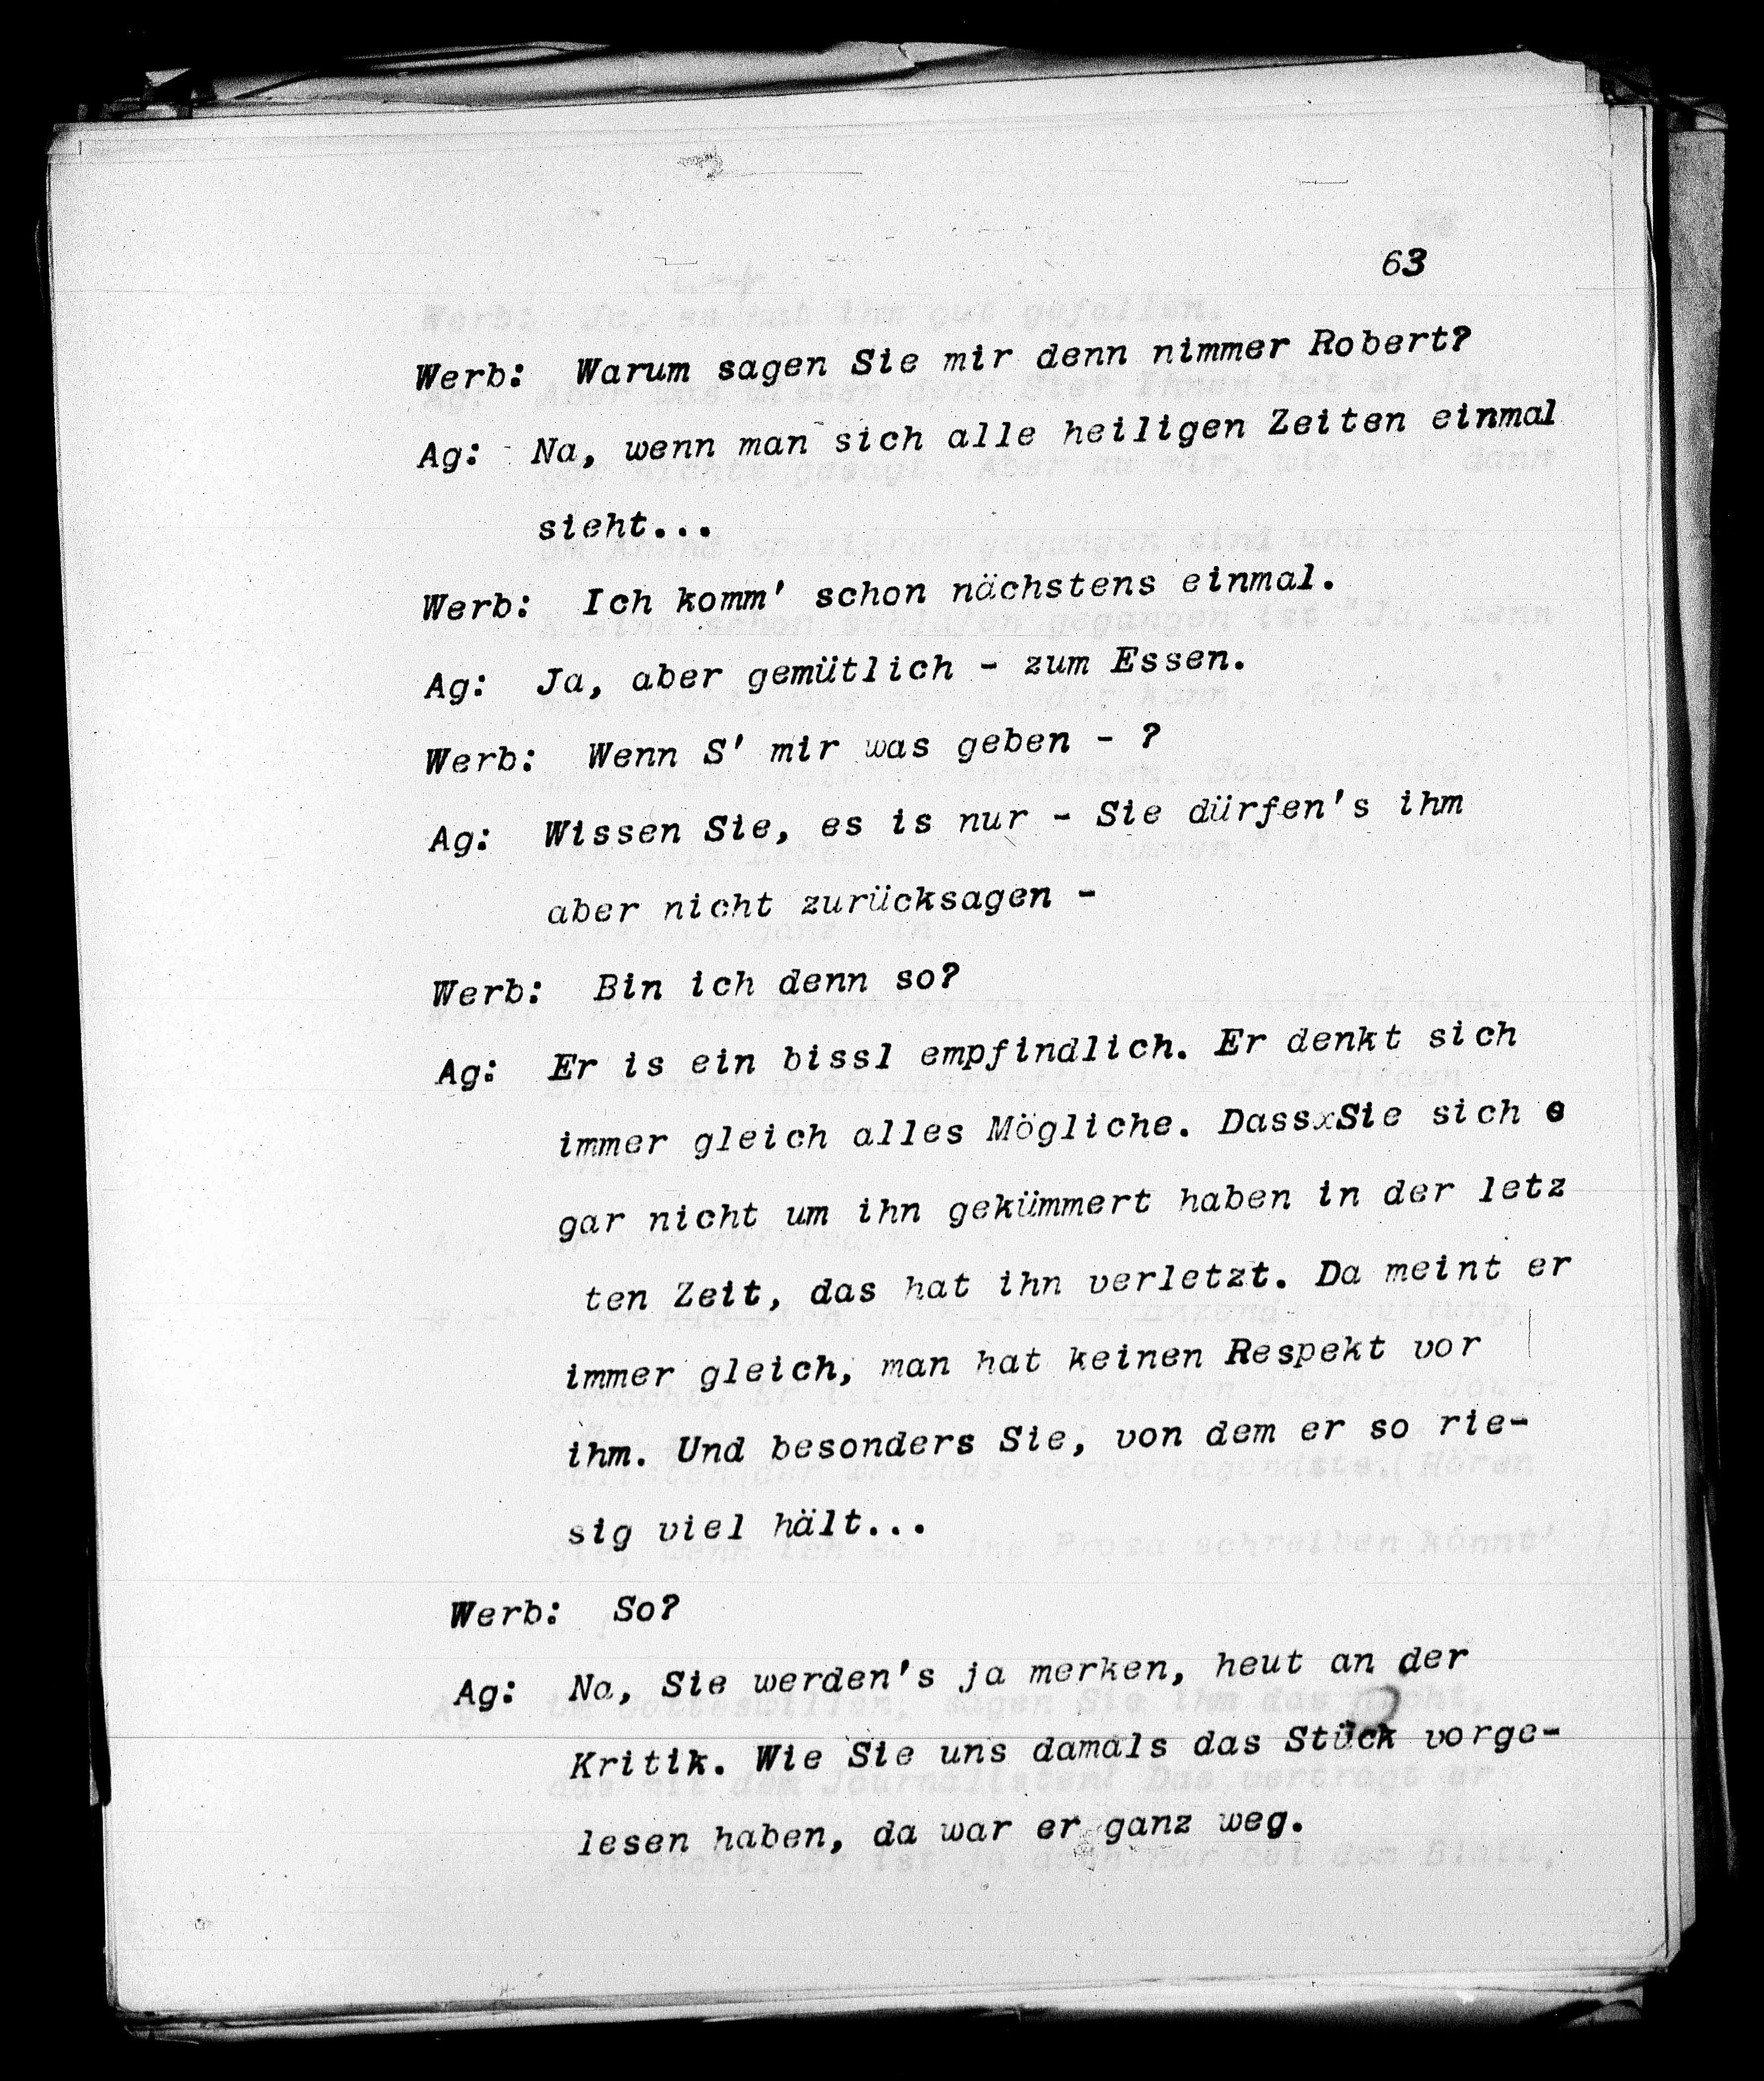 63
Werb: Warum sagen Sie mir denn nimmer Robert?
Ag: Na, wenn man sich alle heiligen Zeiten einmal
sieht...
Werb: Ich komm' schon nächstens einmal.
Ag: Ja, aber gemütlich - zum Essen.
Werb: Wenn S' mir was geben - ?
Ag: Wissen Sie, es is nur - Sie dürfen's ihm
aber nicht zurücksagen -
Werb: Bin ich denn so?
Ag: Er is ein bissl empfindlich. Er denkt sich
immer gleich alles Mögliche. DassxSie sich
gar nicht um ihn gekümmert haben in der letz
ten Zeit, das hat ihn verletzt. Da meint er
immer gleich, man hat keinen Respekt vor
ihm. Und besonders Sie, von dem er so rie-
sig viel hält...
Werb: So?
Ag: Na, Sie werden's ja merken, heut an der
Kritik. Wie Sie uns damals das Stück vorge-
lesen haben, da war er ganz weg.